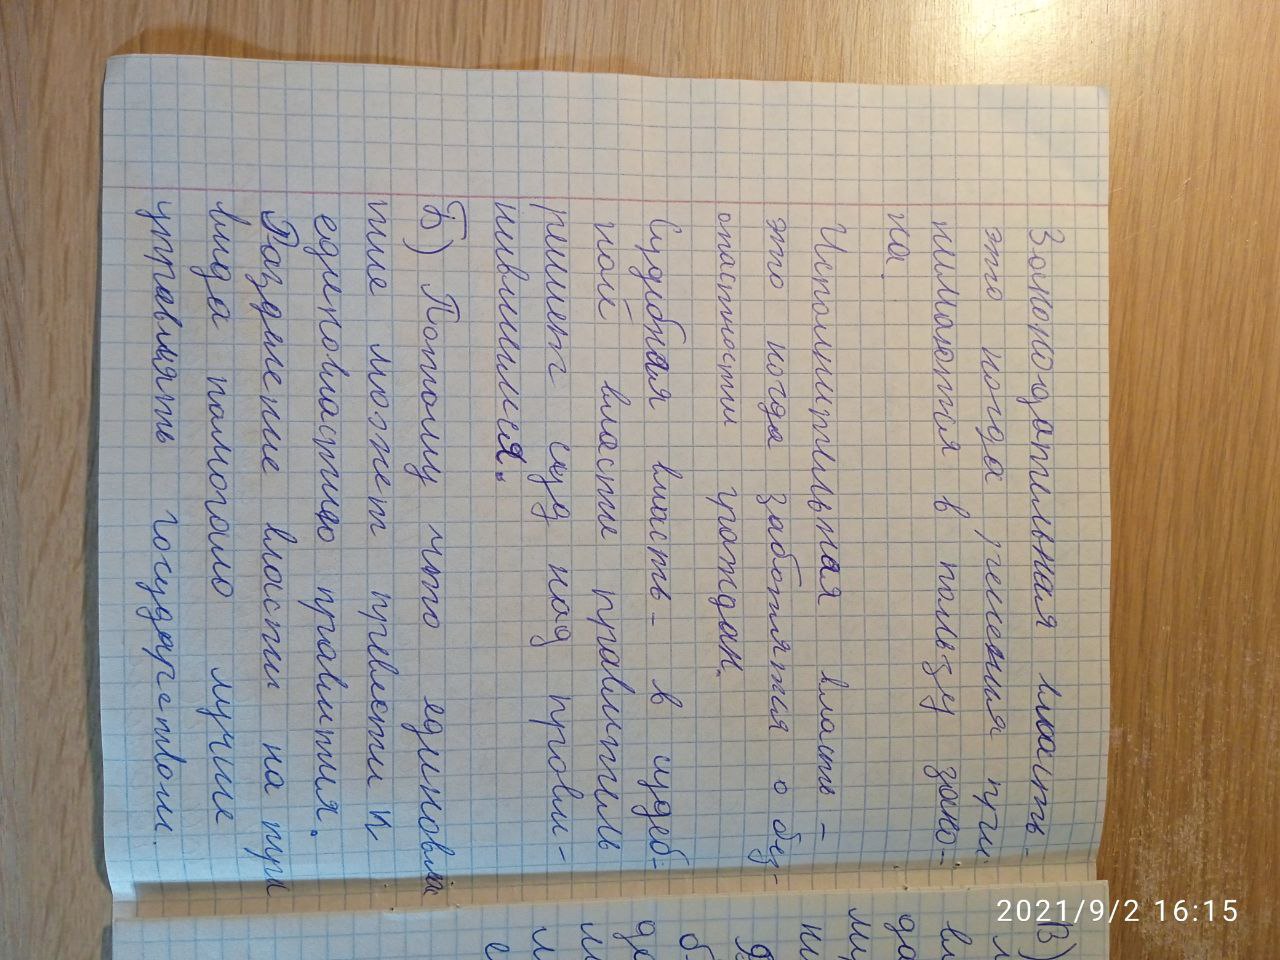 Законодательная власть -
это когда решения при
нимаются в пользу зако-
на.
Исполнительная власть -
это когда заботятся о без-
опастности граждан.
Судебная власть - в судеб-
ной власти правитель
решает суд над прови-
нившимися.
Б) Потому что единовлас
тие может превести к
единовластию правития.
Разделение власти на три
вида помогало лучше
управлять государством.
В)
вл
да
ми
ни
2021/9/2 16:15